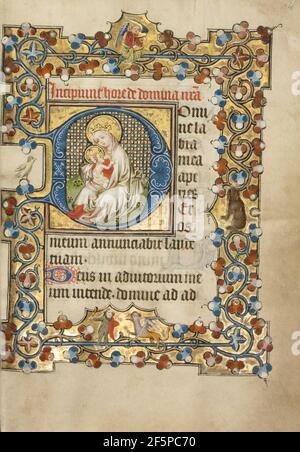 Incipiunt hore de domina nr̄a
Domi
ne la
bia
mea
ape
ries
Et os
meum annunciabit lauōē
tuam.
Deus in adiutorium me
um intende. domine ad ad
alamy
Image ID: 2F5PC70
www.alamy.com